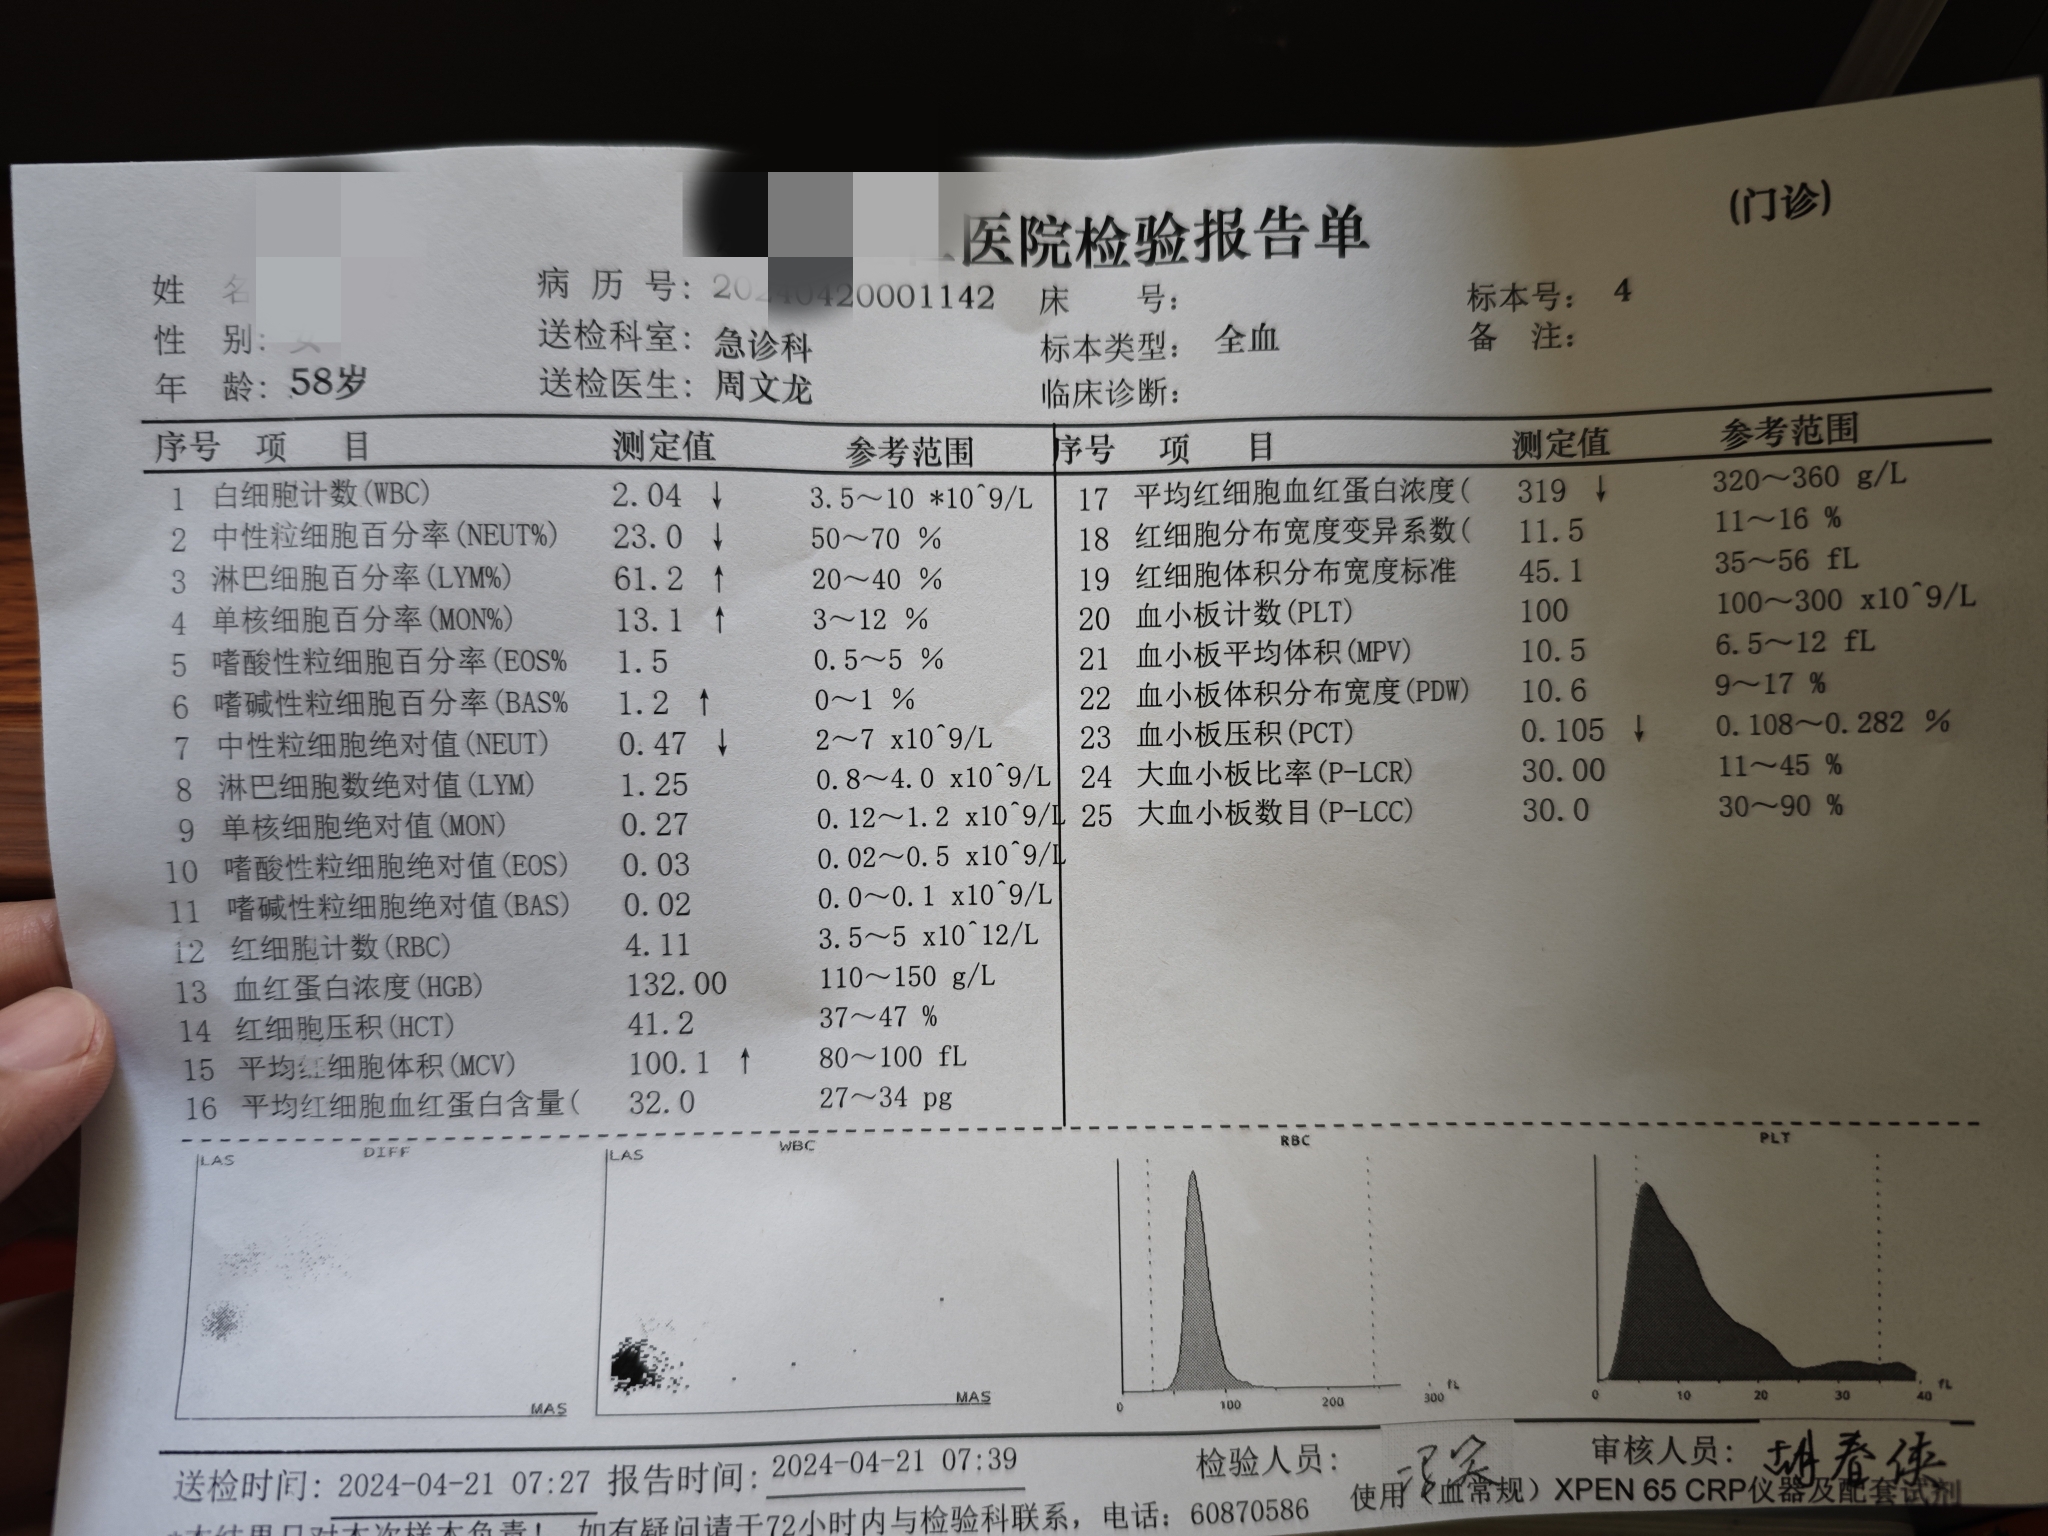 医院检验报告单
(门诊)
姓 名
病 历 号： 20240420001142
床 号：
标本号： 4
性 别： 女
送检科室： 急诊科
标本类型： 全血
备 注：
年 龄： 58岁
送检医生： 周文龙
临床诊断：
序号 项 目 测定值 参考范围
1 白细胞计数(WBC) 2.04 ↓ 3.5～10 *10^9/L
2 中性粒细胞百分率(NEUT%) 23.0 ↓ 50～70 %
3 淋巴细胞百分率(LYM%) 61.2 ↑ 20～40 %
4 单核细胞百分率(MON%) 13.1 ↑ 3～12 %
5 嗜酸性粒细胞百分率(EOS% 1.5 0.5～5 %
6 嗜碱性粒细胞百分率(BAS% 1.2 ↑ 0～1 %
7 中性粒细胞绝对值(NEUT) 0.47 ↓ 2～7 x10^9/L
8 淋巴细胞数绝对值(LYM) 1.25 0.8～4.0 x10^9/L
9 单核细胞绝对值(MON) 0.27 0.12～1.2 x10^9/L
10 嗜酸性粒细胞绝对值(EOS) 0.03 0.02～0.5 x10^9/L
11 嗜碱性粒细胞绝对值(BAS) 0.02 0.0～0.1 x10^9/L
12 红细胞计数(RBC) 4.11 3.5～5 x10^12/L
13 血红蛋白浓度(HGB) 132.00 110～150 g/L
14 红细胞压积(HCT) 41.2 37～47 %
15 平均红细胞体积(MCV) 100.1 ↑ 80～100 fL
16 平均红细胞血红蛋白含量( 32.0 27～34 pg
序号 项 目 测定值 参考范围
17 平均红细胞血红蛋白浓度( 319 ↓ 320～360 g/L
18 红细胞分布宽度变异系数( 11.5 11～16 %
19 红细胞体积分布宽度标准 45.1 35～56 fL
20 血小板计数(PLT) 100 100～300 x10^9/L
21 血小板平均体积(MPV) 10.5 6.5～12 fL
22 血小板体积分布宽度(PDW) 10.6 9～17 %
23 血小板压积(PCT) 0.105 ↓ 0.108～0.282 %
24 大血小板比率(P-LCR) 30.00 11～45 %
25 大血小板数目(P-LCC) 30.0 30～90 %
LAS DIFF
MAS
LAS WBC
MAS
RBC
0 100 200 300 fL
PLT
0 10 20 30 40 fL
送检时间： 2024-04-21 07:27 报告时间： 2024-04-21 07:39
检验人员：
审核人员： 胡春侠
使用（血常规）XPEN 65 CRP仪器及配套试剂
*本结果只对本次样本负责！ 如有疑问请于72小时内与检验科联系，电话：60870586